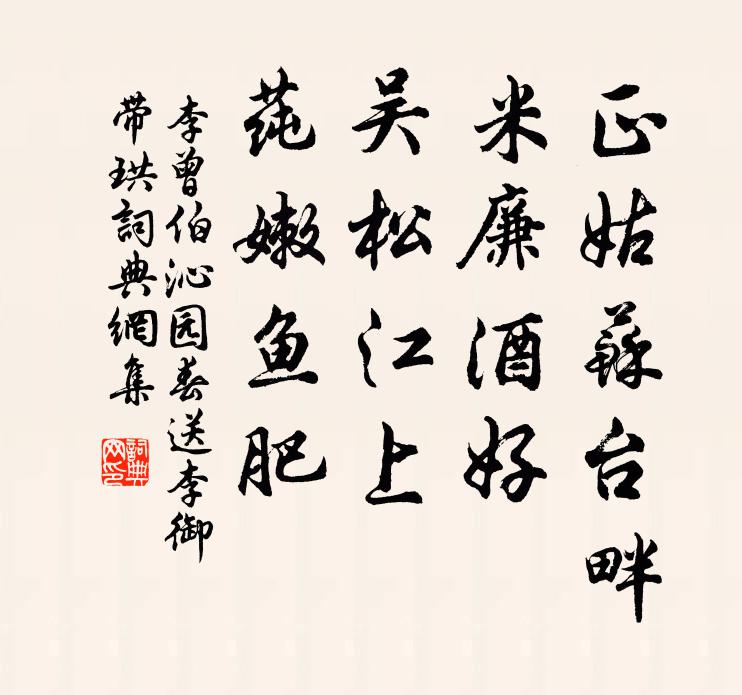 正姑蘇台畔
米廉酒好
吴松江上
莼嫩鱼肥
李曾伯沁园春送李御
带珙詞典網集
詞典网印